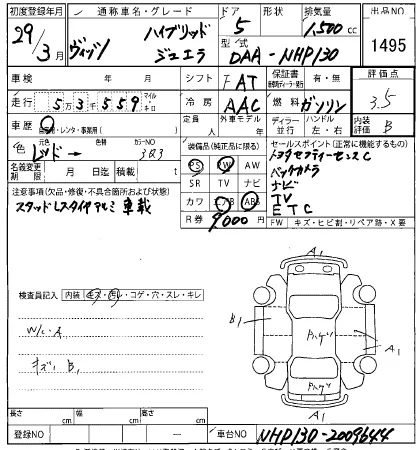 初度登録年月 通称車名・グレード ドア 形状 排気量 出品NO
29年 3月 ヴィッツ ハイブリッド ジュエラ 5 1,500cc 1495
型式 DAA-NHP130
車検 年 月 シフト F AT 保証書 有・無 評価点
走行 5万3千559 マイル・キロ 冷房 AAC 燃料 ガソリン 3.5
車歴 自家用・レンタ・事業用( ) 定員 人 外車モデル 年 ディーラー 並行 ハンドル 左・右 内装評価 B
色 元色 レッド→ 色替 カラーNO 3R3 装備品(純正品に限る) セールスポイント(正常に機能するもの)
名義変更期限 月 日迄 積載 t PS PW AW トヨタセフティーセンスC
注意事項(欠品・修復・不具合箇所および状態) SR TV ナビ バックカメラ
スタッドレスタイヤアルミ車載 カワ エアB ABS ナビ
R券 9,000円 TV
ETC
FW キズ・ヒビ割・リペア跡・X要
検査員記入 内装 キズ・汚レ・コゲ・穴・スレ・キレ
A1
W/C・A
B1
キズ・B1
A1
A1
長さ cm 幅 cm 高さ cm
登録NO — 車台NO NHP130-2009644